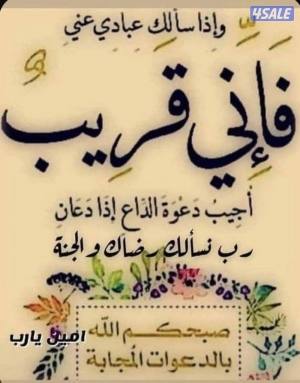 4SALE
وإذا سألك عبادي عني
فَإِنِّي قَرِيبٌ
أجيبُ دَعْوَةَ الدَّاعِ إِذَا دَعَانِ
رب نسألك رضاك والجنة
صبحكم الله
بالدعوات المجابة
امين يارب